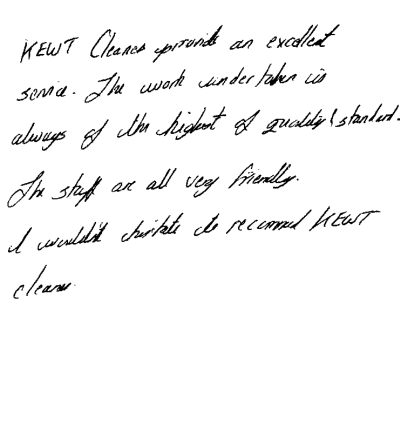 KEWT Cleaners provide an excellent
service. The work undertaken is
always of the highest of quality & standard.
The staff are all very friendly.
I wouldn't hesitate to recommend KEWT
cleaners.